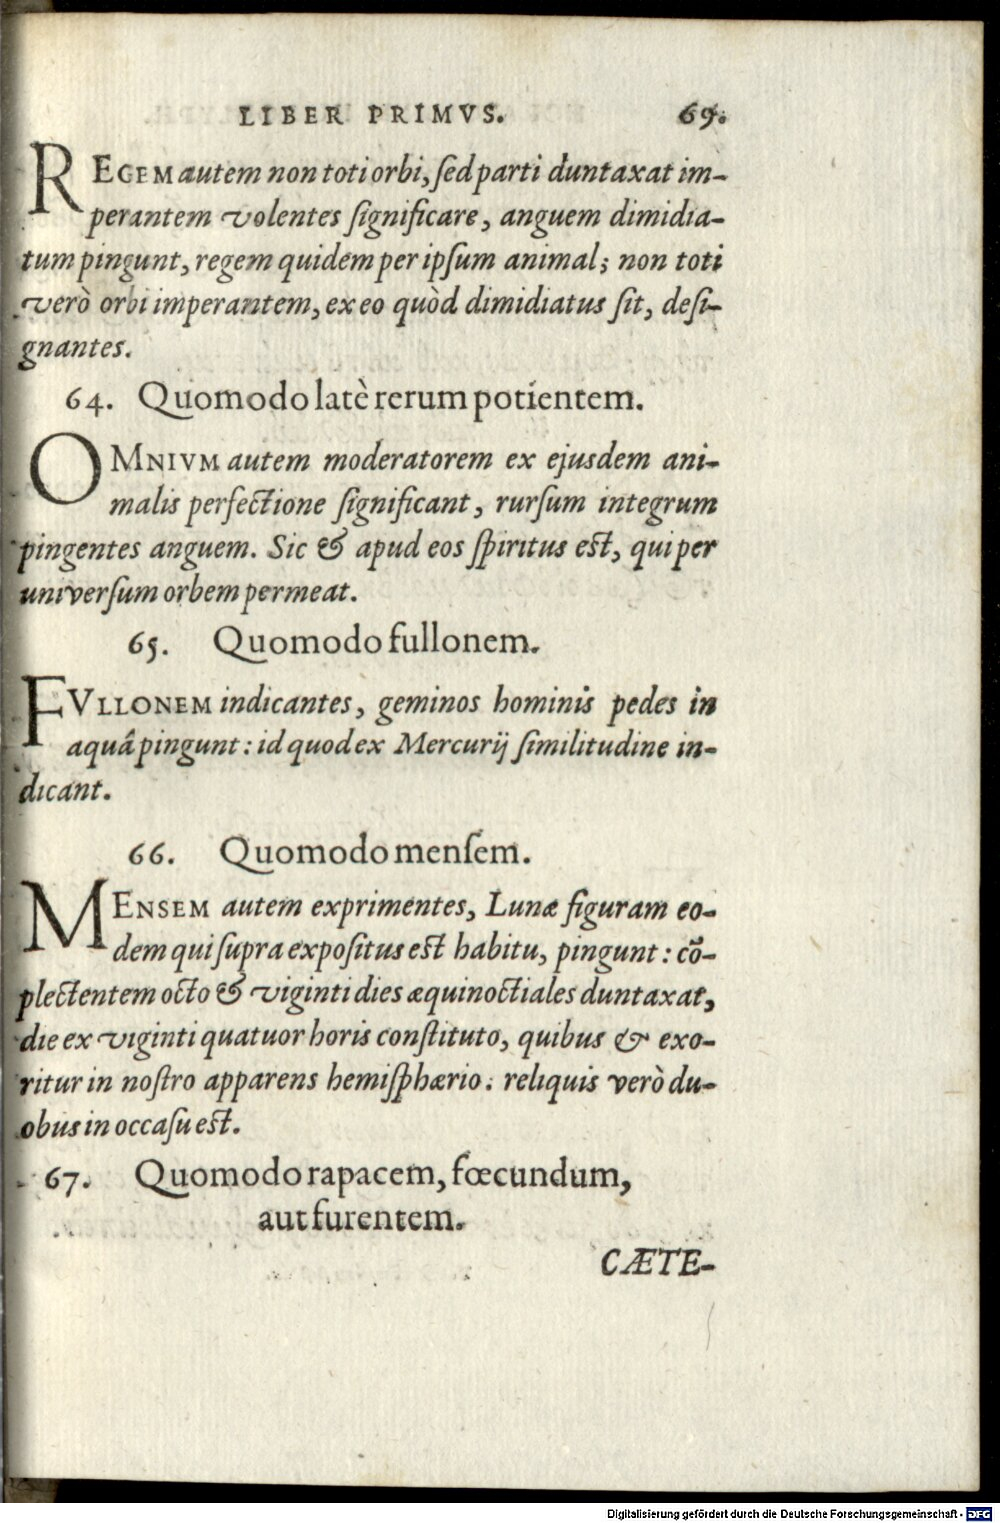 LIBER PRIMVS. 69.
REGEM autem non toti orbi, sed parti duntaxat im-
perantem volentes significare, anguem dimidia-
tum pingunt, regem quidem per ipsum animal; non toti
verò orbi imperantem, ex eo quòd dimidiatus sit, desi-
gnantes.
64. Quomodo latè rerum potientem.
OMNIVM autem moderatorem ex ejusdem ani-
malis perfectione significant, rursum integrum
pingentes anguem. Sic & apud eos spiritus est, qui per
universum orbem permeat.
65. Quomodo fullonem.
FVLLONEM indicantes, geminos hominis pedes in
aquâ pingunt: id quod ex Mercurij similitudine in-
dicant.
66. Quomodo mensem.
MENSEM autem exprimentes, Lunæ figuram eo-
dem qui supra expositus est habitu, pingunt: cõ-
plectentem octo & viginti dies æquinoctiales duntaxat,
die ex viginti quatuor horis constituto, quibus & exo-
ritur in nostro apparens hemisphærio: reliquis verò du-
obus in occasu est.
67. Quomodo rapacem, fœcundum,
aut furentem.
CÆTE-
Digitalisierung gefördert durch die Deutsche Forschungsgemeinschaft - DFG